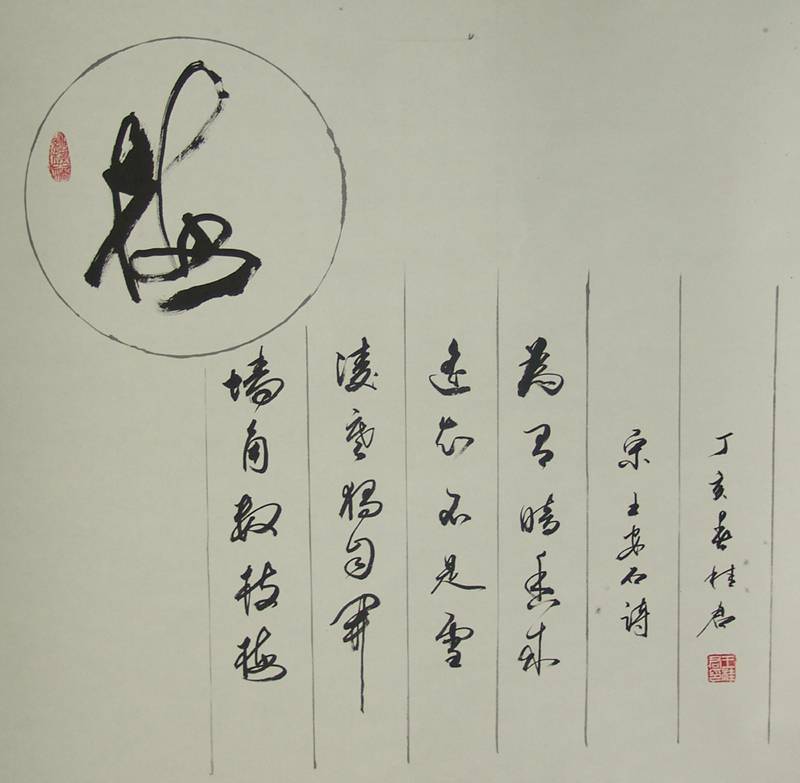 梅
墙角数枝梅
凌寒独自开
遥知不是雪
为有暗香来
宋王安石诗
丁亥春桂君